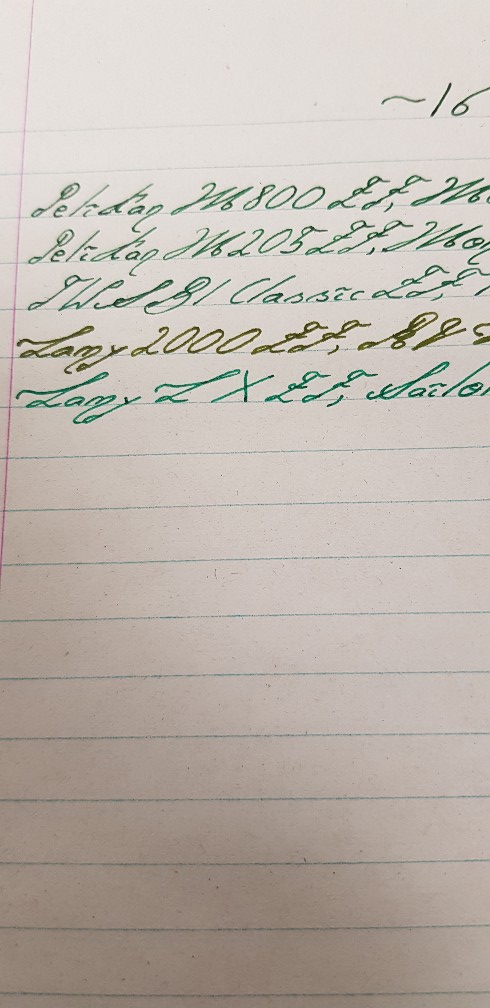 ~16
Pelikan M800 EF, M
Pelikan M205 EF, Mon
TWSBI Classic EF,
Lamy 2000 EF,
Lamy LX EF, Sailor